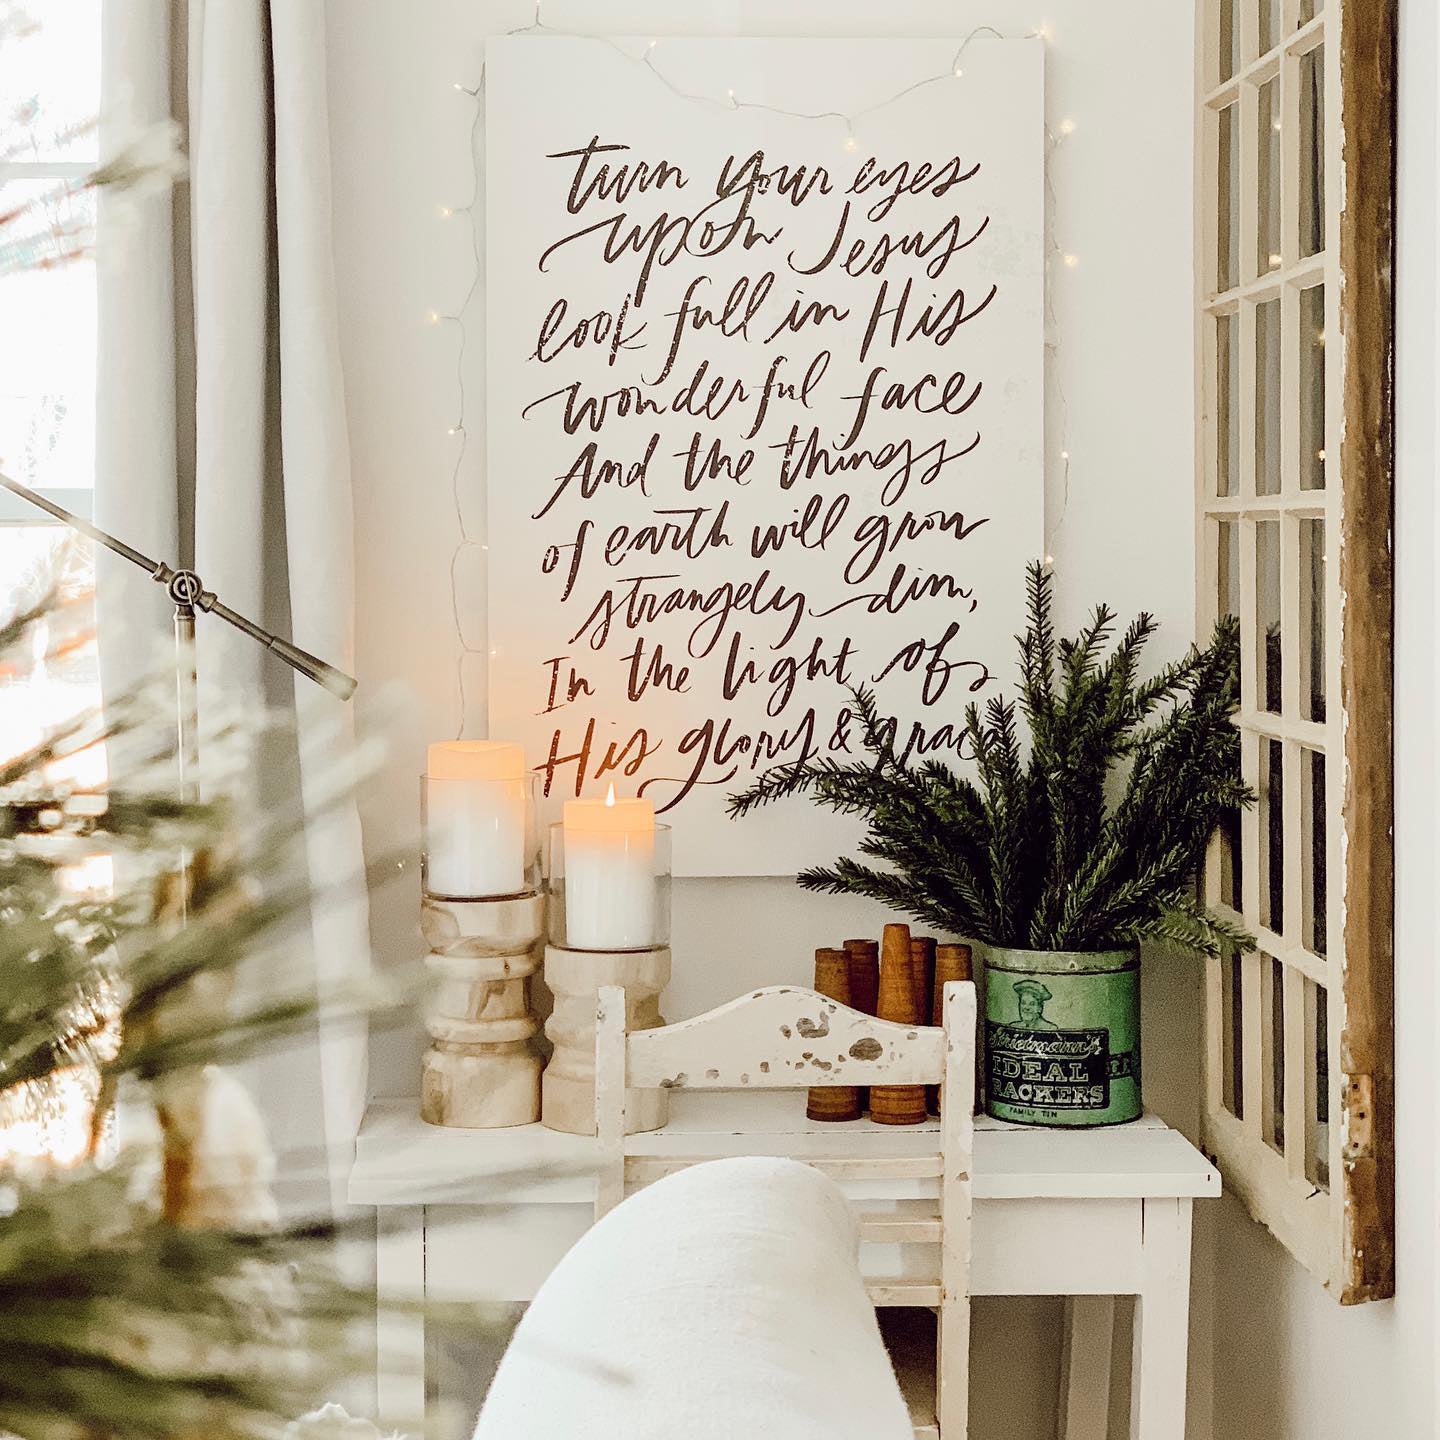 turn your eyes
upon Jesus
look full in His
wonderful face
And the things
of earth will grow
strangely dim,
In the light of
His glory & grace
Strietmann's
IDEAL
RACKERS
FAMILY TIN